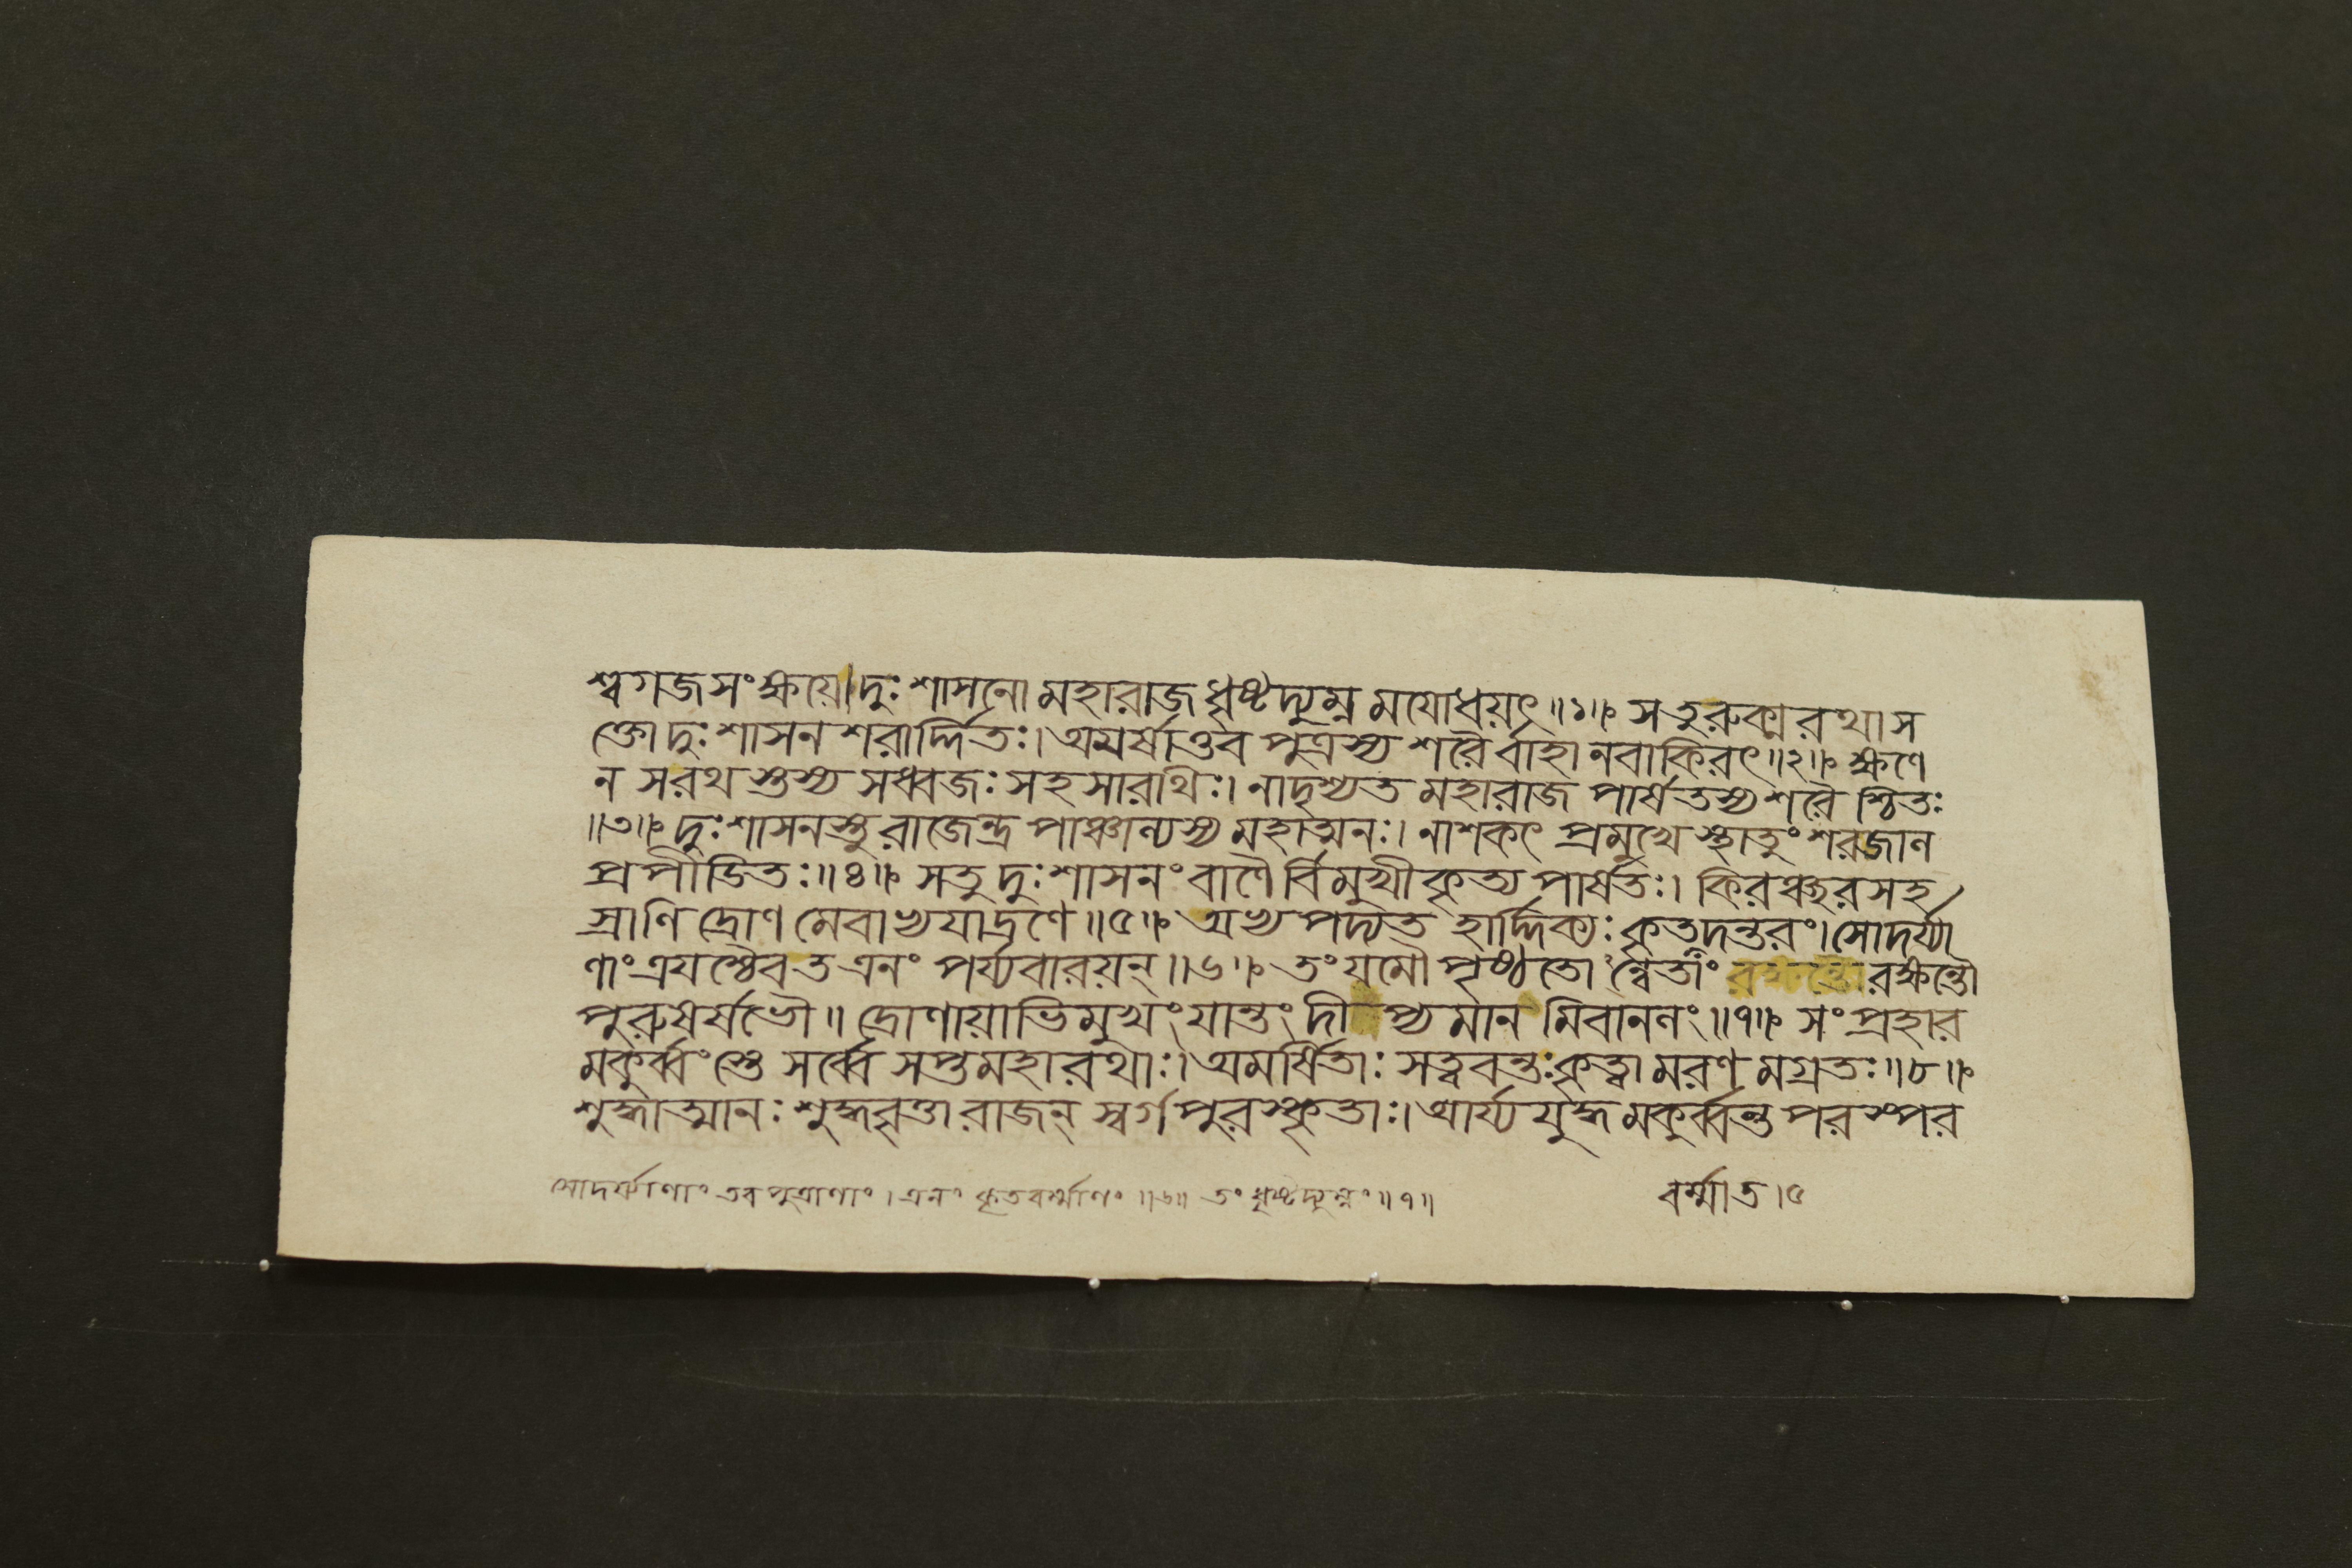 শ্বগজসংক্ষয়ে।দুঃশাসনো মহারাজ ধৃষ্টদ্যুম্ন মযোধয়ৎ॥১॥ সতুরুক্মরথাস
ক্তো দুঃশাসন শরার্দ্দিতঃ।অমর্ষাত্তব পুত্রস্য শরৈর্বাহানবাকিরৎ॥২॥ ক্ষণে
ন সরথস্তস্য সধ্বজঃ সহসারথিঃ। নাদৃশ্যত মহারাজ পার্ষতস্য শরৈ শ্চিতঃ
॥৩॥ দুঃশাসনস্তু রাজেন্দ্র পাঞ্চাল্যস্য মহাত্মনঃ। নাশকৎ প্রমুখে স্থাতুং শরজাল
প্রপীডিতঃ॥৪॥ সতু দুঃশাসনং বাণৈ র্বিমুখীকৃত্য পার্ষতঃ। কিরঞ্ছরসহ
স্রাণি দ্রোণ মেবাভ্যযাদ্রণে॥৫॥ অভ্য পদ্যত হার্দ্দিক্যঃ কৃতদন্তরং।সোদর্য্যা
ণাং ত্রযশ্চৈব ত এনং পর্য্যবারয়ন্॥৬॥ তং যমৌ পৃষ্ঠতো ঽন্বৈতাং রক্ষন্তৌ
পুরুষর্ষভৌ॥ দ্রোণায়াভিমুখং যান্তং দীপ্যমান মিবানলং॥৭॥ সং প্রহার
মকুর্ব্বংস্তে সর্ব্বে সপ্তমহারথাঃ।অমর্ষিতাঃ সত্ববন্তঃ কৃত্বা মরণ মগ্রতঃ॥৮॥
শুদ্ধাত্মানঃ শুদ্ধবৃত্তা রাজন্ স্বর্গ পুরস্কৃতাঃ।আর্য্য যুদ্ধ মকুর্ব্বন্ত পরস্পর
সোদর্য্যাণাং তব পুত্রাণাং। এনং কৃতবর্ম্মাণং ॥৬॥ তং ধৃষ্টদ্যুম্নং॥৭॥
বর্ম্মাত।৫